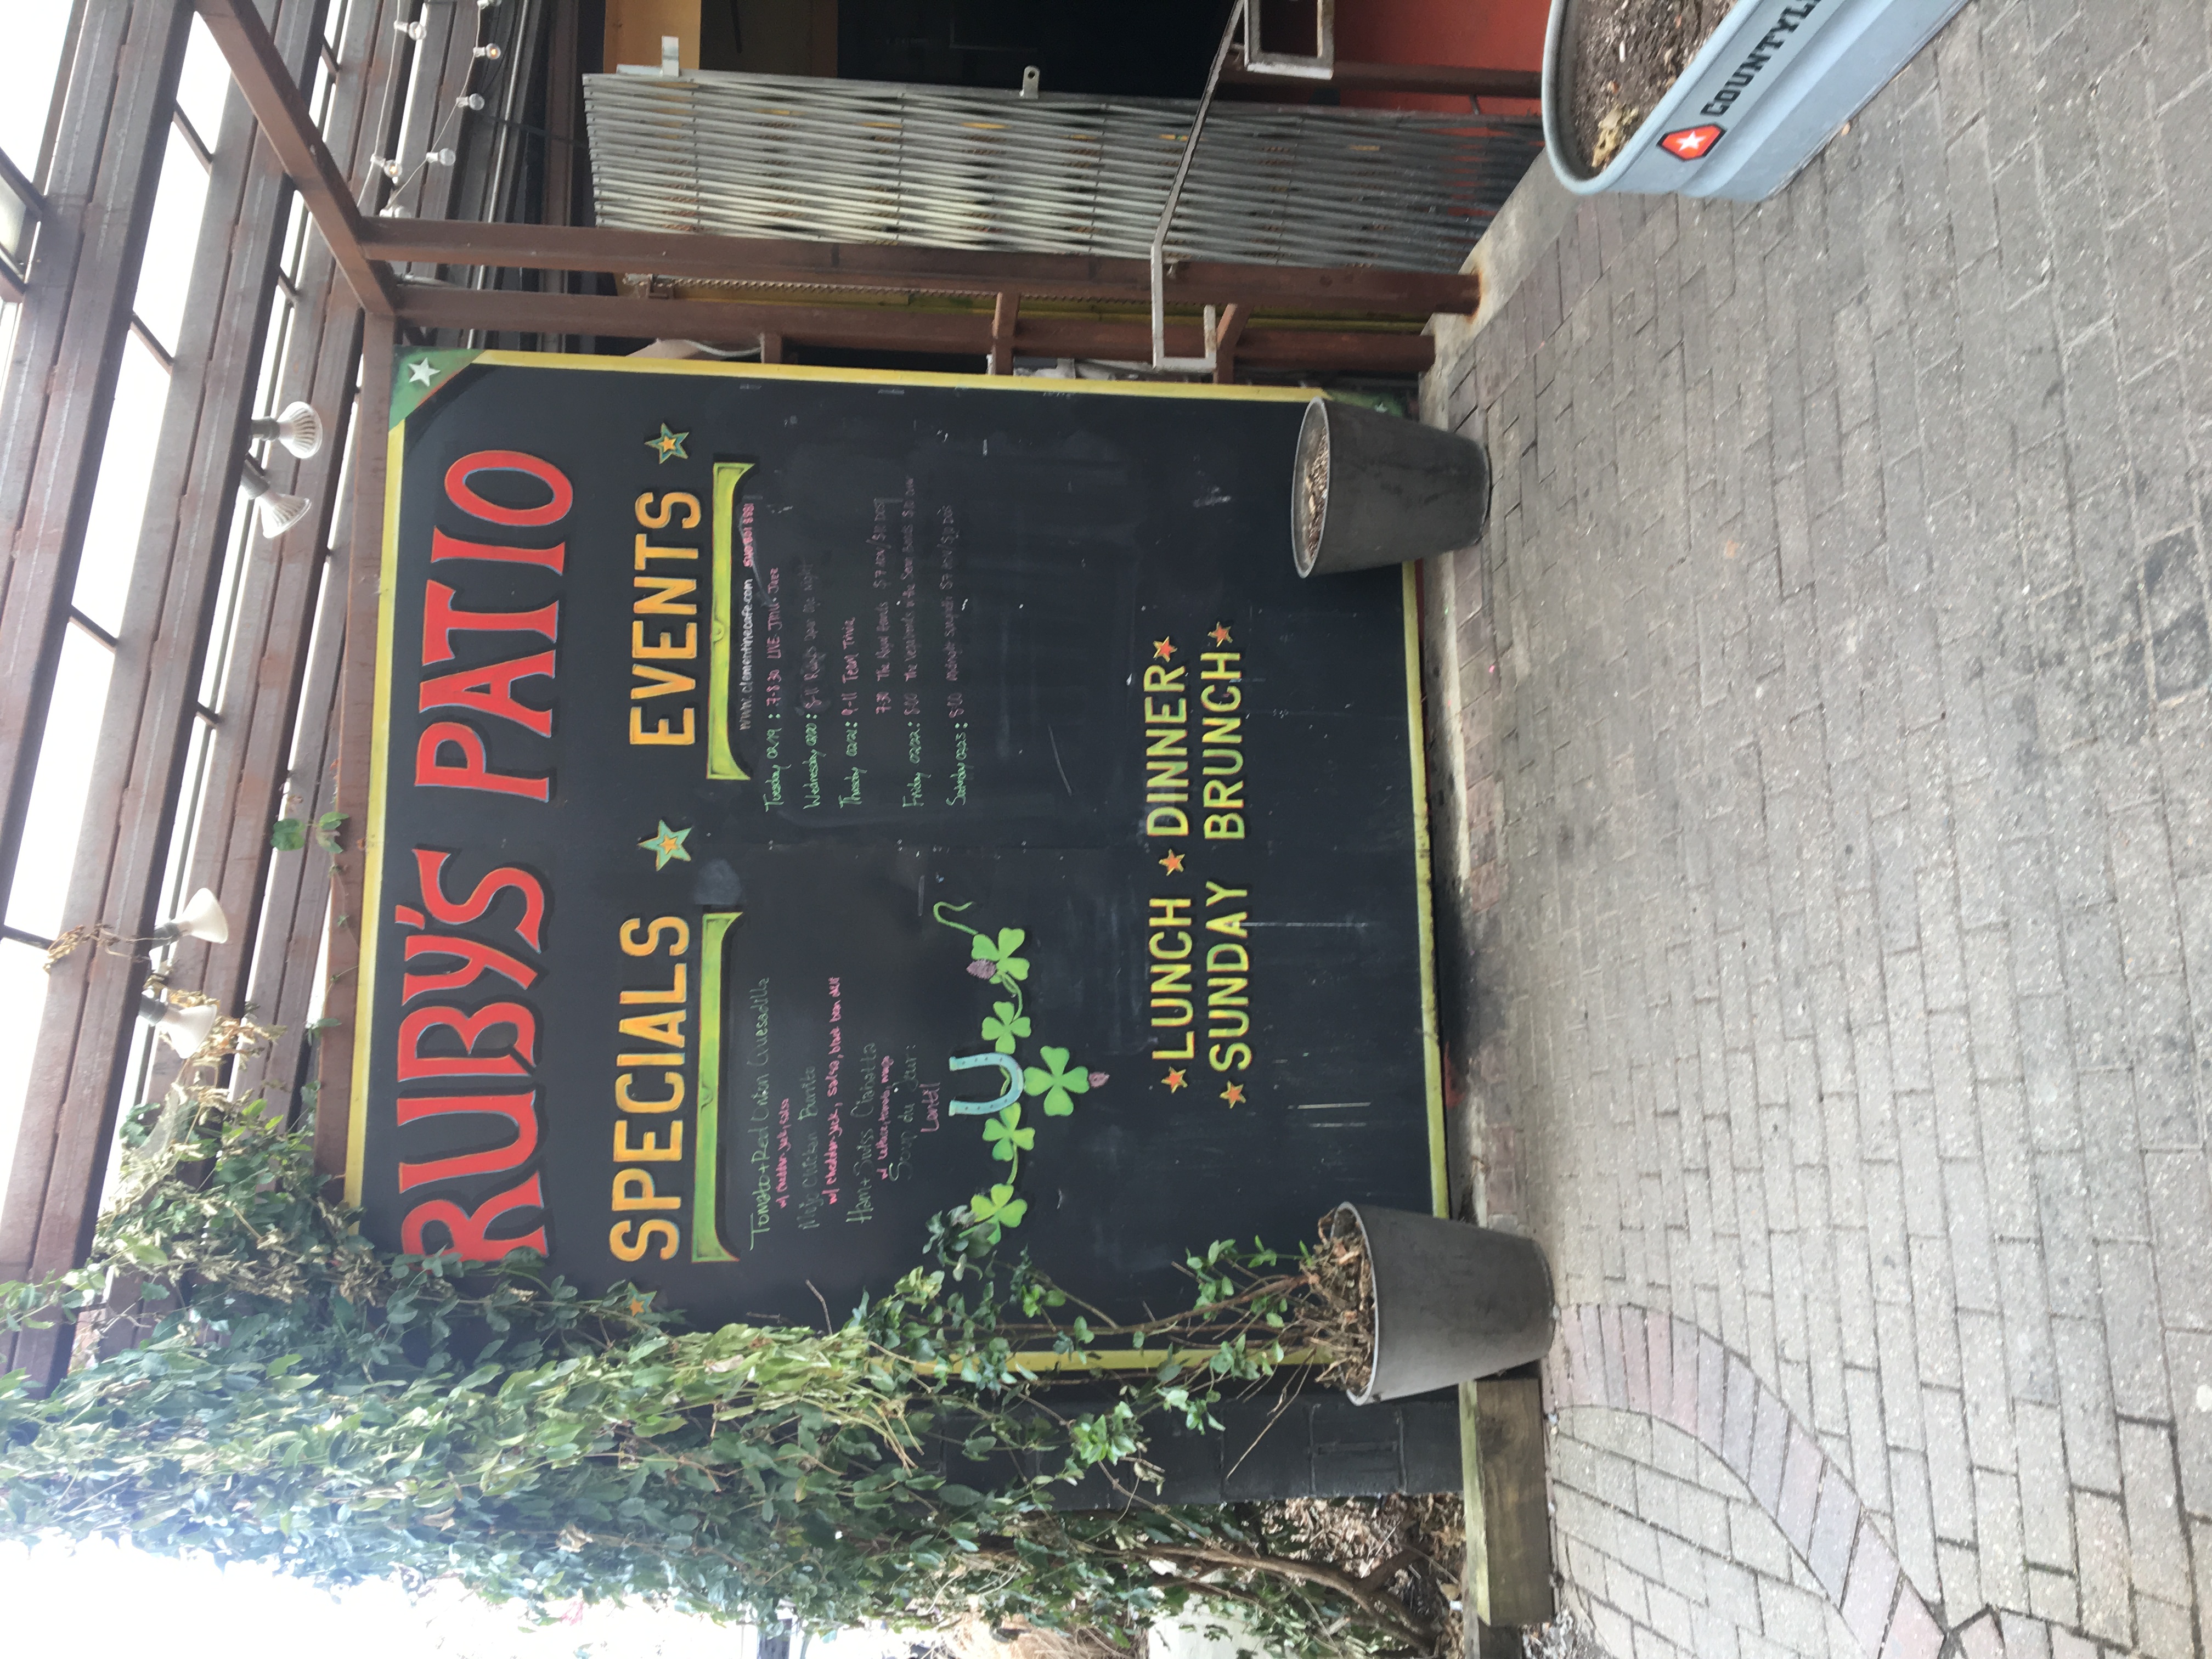 RUBY'S PATIO
SPECIALS
Tomato + Red Onion Quesadilla
w/ cheddar-jack, salsa
Mojo Chicken Burrito
w/ cheddar-jack, salsa, black bean
Ham + Swiss Ciabatta
w/ lettuce, tomato, mayo
Soup du Jour:
Lentil
EVENTS
www.clementinecafe.com 540 801 8881
Tuesday 02/19: 7-8:30 LIVE JMU Jazz
Wednesday 02/20: 8-11 Ruby's Open Mic Night
Thursday 02/21: 9-11 Team Trivia
7:30 The Royal $7 ADV/$10 DOS
Friday 02/22: 8:00 The Vegabonds $10
Saturday 02/23: 8:00 Midnight Spaghetti $7 ADV/$10 DOS
LUNCH DINNER
SUNDAY BRUNCH
COUNTYL